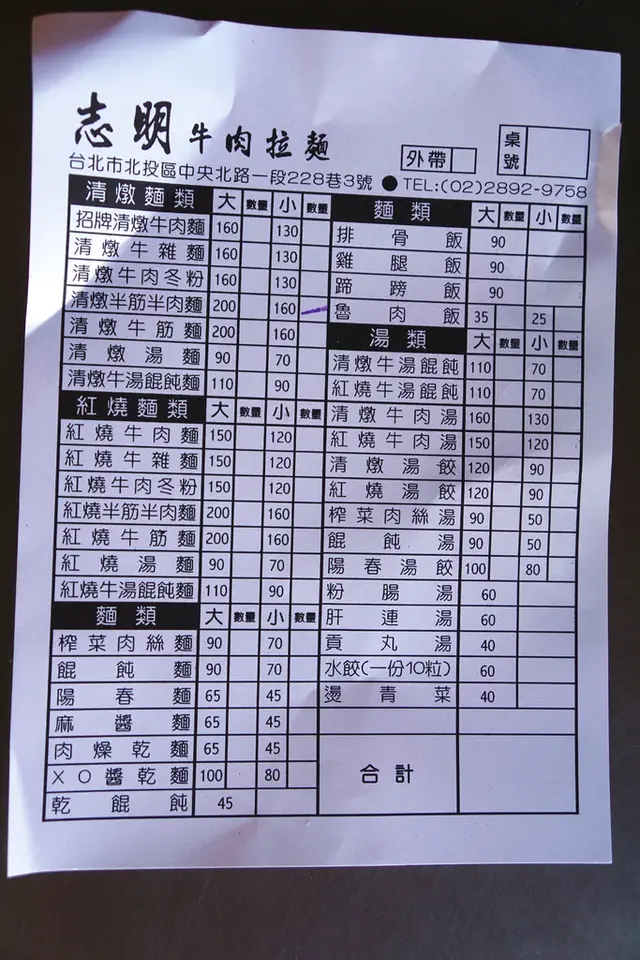 志明 牛肉拉麵
外帶
桌號
台北市北投區中央北路一段228巷3號 ● TEL:(02)2892-9758
清燉麵類 大 數量 小 數量
招牌清燉牛肉麵 160 130
清燉牛雜麵 160 130
清燉牛肉冬粉 160 130
清燉半筋半肉麵 200 160
清燉牛筋麵 200 160
清燉湯麵 90 70
清燉牛湯餛飩麵 110 90
紅燒麵類 大 數量 小 數量
紅燒牛肉麵 150 120
紅燒牛雜麵 150 120
紅燒牛肉冬粉 150 120
紅燒半筋半肉麵 200 160
紅燒牛筋麵 200 160
紅燒湯麵 90 70
紅燒牛湯餛飩麵 110 90
麵類 大 數量 小 數量
榨菜肉絲麵 90 70
餛飩麵 90 70
陽春麵 65 45
麻醬麵 65 45
肉燥乾麵 65 45
XO醬乾麵 100 80
乾餛飩 45
麵類 大 數量 小 數量
排骨飯 90
雞腿飯 90
蹄膀飯 90
魯肉飯 35 25
湯類 大 數量 小 數量
清燉牛湯餛飩 110 70
紅燒牛湯餛飩 110 70
清燉牛肉湯 160 130
紅燒牛肉湯 150 120
清燉湯餃 120 90
紅燒湯餃 120 90
榨菜肉絲湯 90 50
餛飩湯 90 50
陽春湯餃 100 80
粉腸湯 60
肝連湯 60
貢丸湯 40
水餃(一份10粒) 60
燙青菜 40
合計